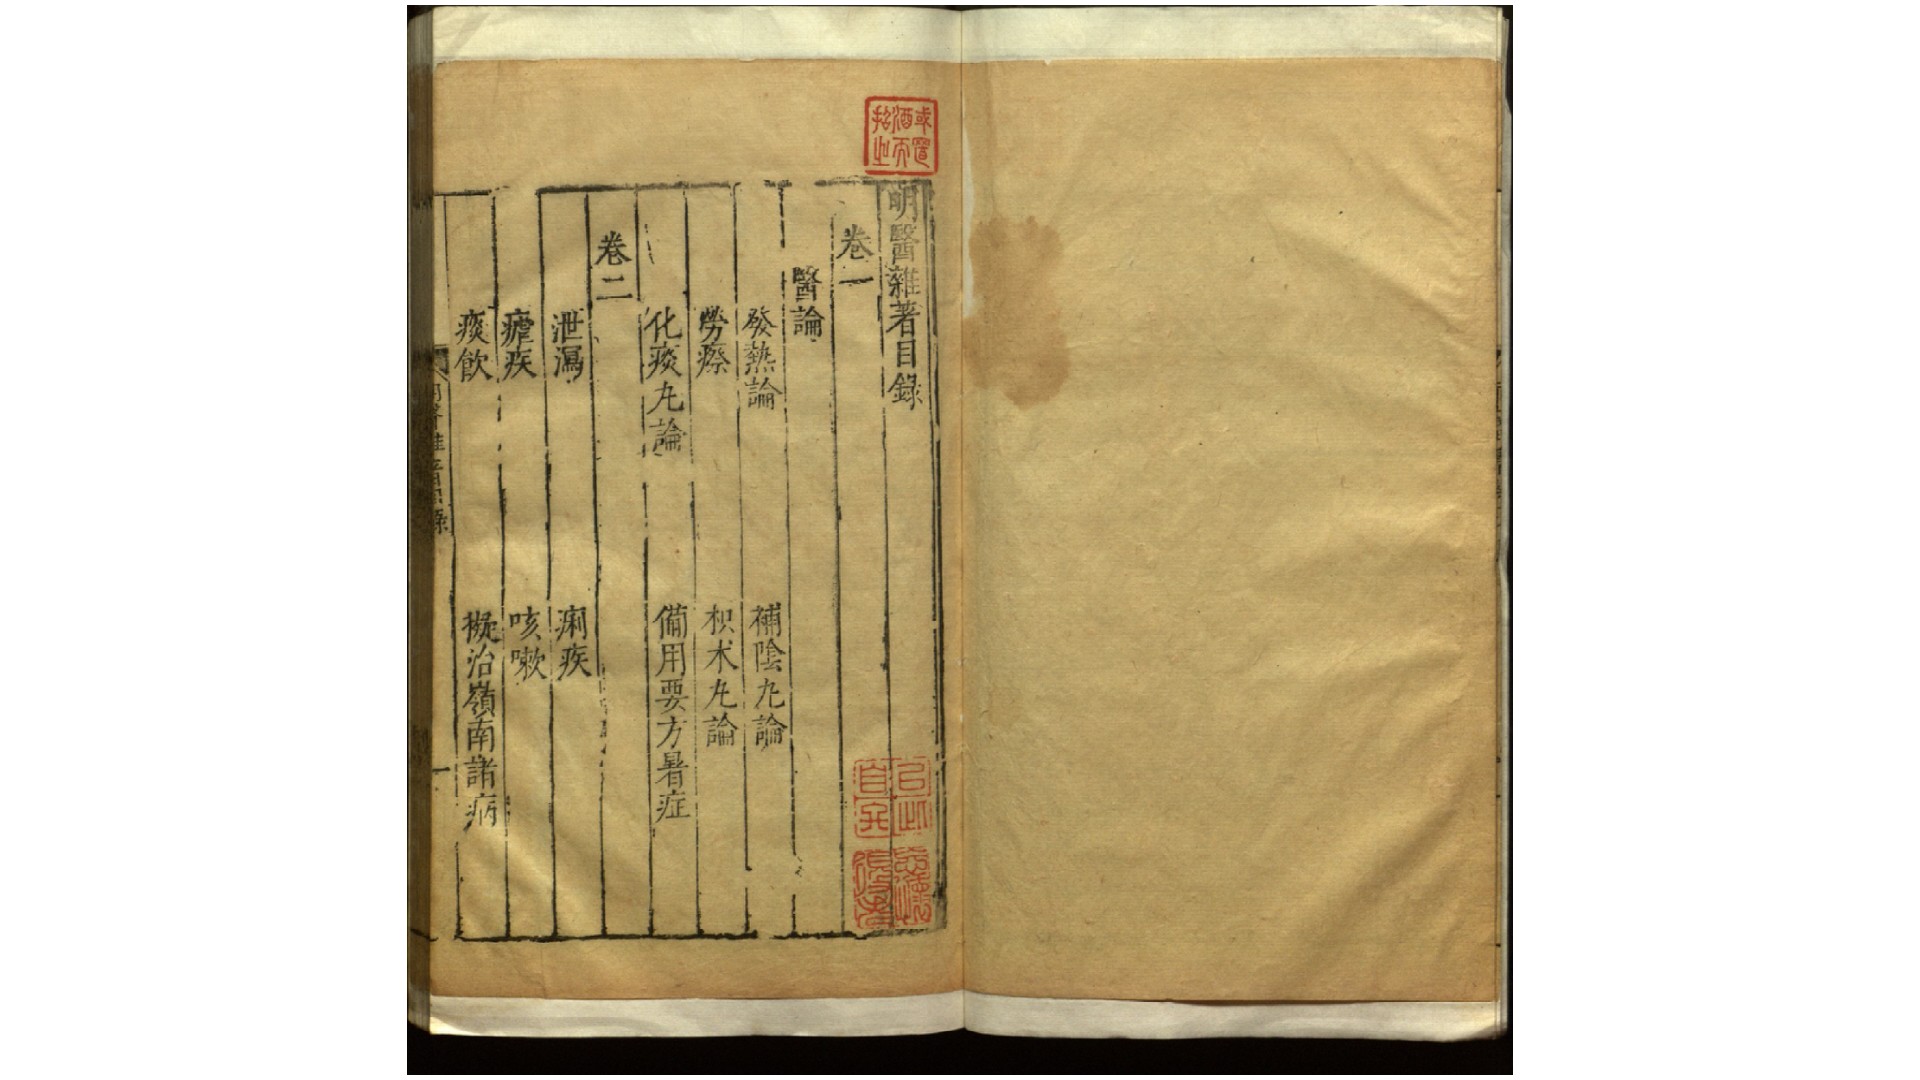 明醫雜著目錄
卷一
醫論
發熱論 補陰丸論
勞瘵 枳朮丸論
化痰丸論 備用要方暑症
卷二
泄瀉 痢疾
瘧疾 咳嗽
痰飲 擬治嶺南諸病
明醫雜著目錄 一